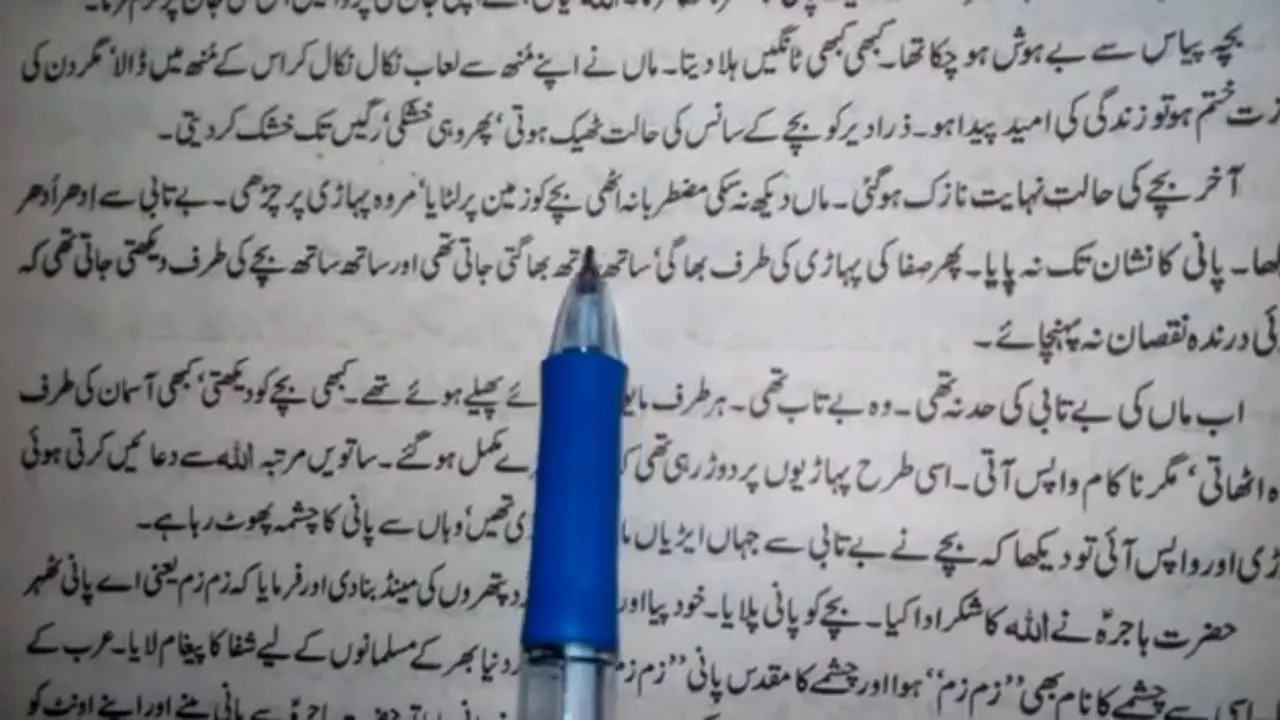 بچہ پیاس سے بے ہوش ہو چکا تھا۔ کبھی کبھی ٹانگیں ہلا دیتا۔ ماں نے اپنے مُنھ سے لعاب نکال نکال کر اس کے مُنھ میں ڈالا، مگر دن کی
ختم ہو تو زندگی کی امید پیدا ہو۔ ذرا دیر کو بچے کے سانس کی حالت ٹھیک ہوتی، پھر وہی خشکی، رگیں تک خشک کر دیتی۔
آخر بچے کی حالت نہایت نازک ہو گئی۔ ماں دیکھ نہ سکی مضطربانہ اٹھی بچے کو زمین پر لٹایا، مروہ پہاڑی پر چڑھی۔ بے تابی سے اِدھر اُدھر
پانی کا نشان تک نہ پایا۔ پھر صفا کی پہاڑی کی طرف بھاگی، ساتھ بھاگتی جاتی تھی اور ساتھ ساتھ بچے کی طرف دیکھتی جاتی تھی کہ
درندہ نقصان نہ پہنچائے۔
اب ماں کی بے تابی کی حد نہ تھی۔ وہ بے تاب تھی۔ ہر طرف پھیلے ہوئے تھے۔ کبھی بچے کو دیکھتی، کبھی آسمان کی طرف
اٹھاتی، مگر ناکام واپس آتی۔ اسی طرح پہاڑیوں پر دوڑ رہی تھی مکمل ہو گئے۔ ساتویں مرتبہ اللہ سے دعائیں کرتی ہوئی
اور واپس آئی تو دیکھا کہ بچے نے بے تابی سے جہاں ایڑیاں تھیں، وہاں سے پانی کا چشمہ پھوٹ رہا ہے۔
حضرت ہاجرہؓ نے اللہ کا شکر ادا کیا۔ بچے کو پانی پلایا۔ خود پیا اور پتھروں کی مینڈ بنا دی اور فرمایا کہ زم زم یعنی اے پانی ٹھہر
چشمے کا نام بھی ”زم زم“ ہوا اور چشمے کا مقدس پانی ”زم دنیا بھر کے مسلمانوں کے لیے شفا کا پیغام لایا۔ عرب کے